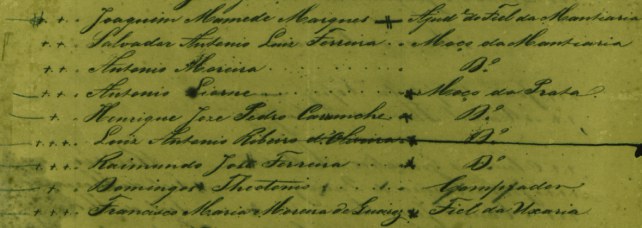 Joaquim Mamede Marques Ajud.e do Fiel da Mantiaria
Salvador Antonio Luiz Ferreira Moço da Mantiaria
Antonio Moreira D.o
Antonio Moço da Prata
Henrique Jose Pedro D.o
Luiz Antonio Ribeiro d'Oliveira D.o
Raimundo José Ferreira D.o
Domingos Theotonio
Francisco Maria Moreira de Fiel da Uxaria